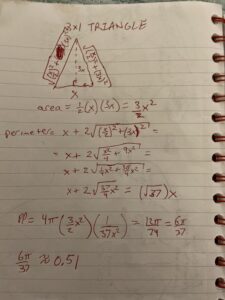 3x1 TRIANGLE
3x
x
area = 1/2 (x) (3x) = 3x²/2
perimeter = x + 2√((x/2)² + (3x)²) =
= x + 2√(x²/4 + 9x²) =
x + 2√(1/4x² + 36/4x²) =
x + 2√(37/4 x²) = (√37)x
PP = 4π (3/2 x²) (1/37x²) = 12π/74 = 6π/37
6π/37 ≈ 0.51